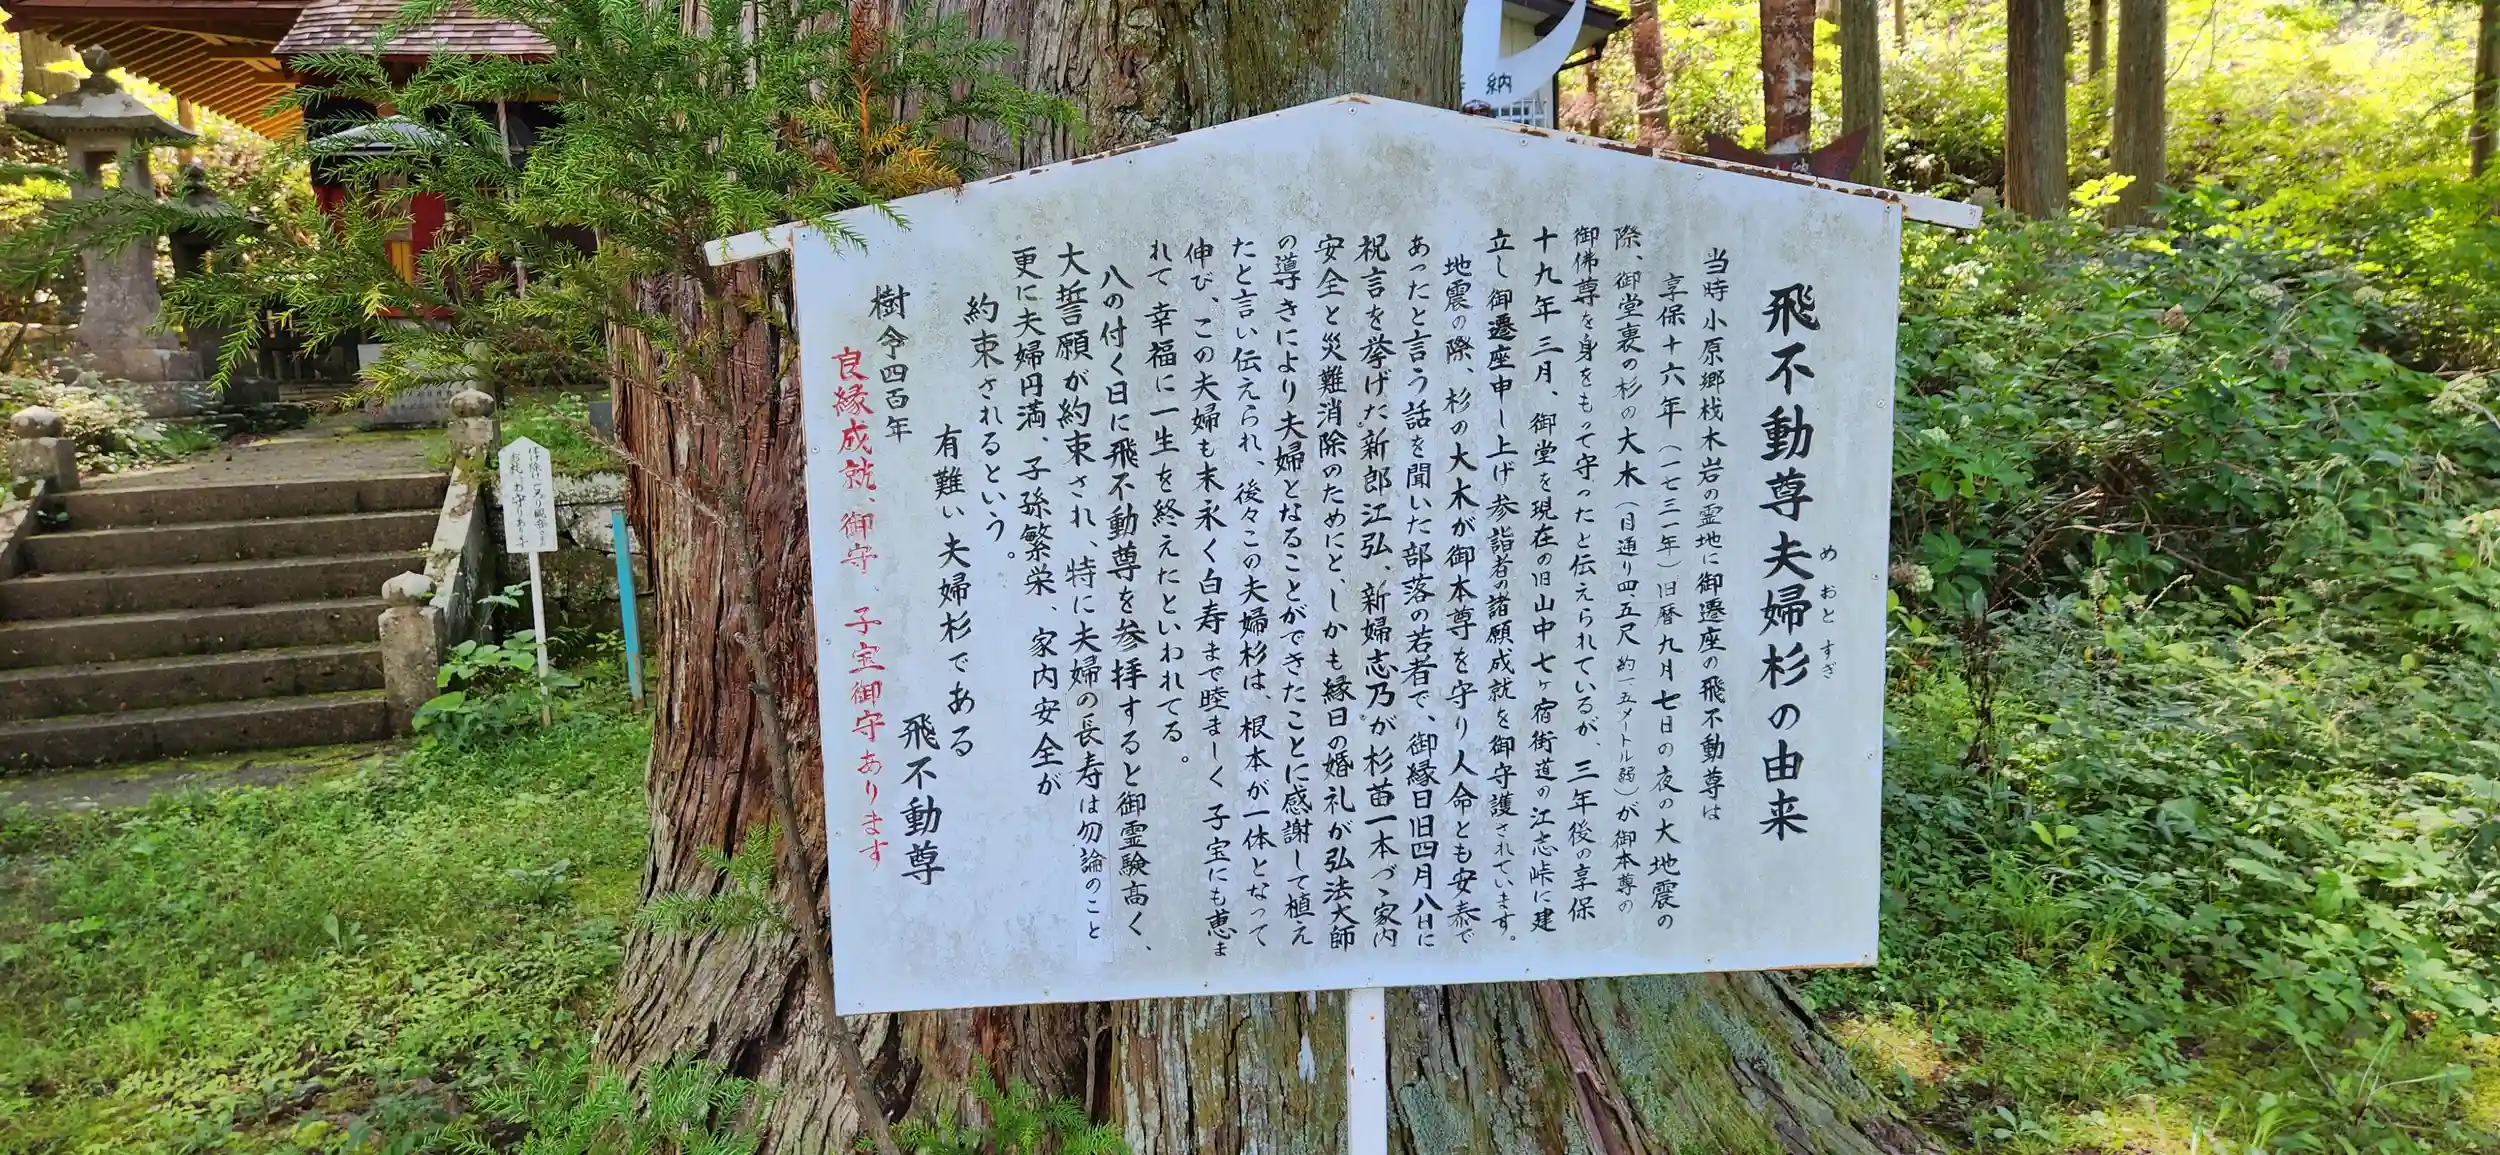 飛不動尊夫婦杉の由来
めおとすぎ
当時小原郷栈木岩の霊地に御遷座の飛不動尊は
享保十六年（一七三一年）旧暦九月七日の夜の大地震の
際、御堂裏の杉の大木（目通り四五尺 約一五メートル弱）が御本尊の
御佛尊を身をもって守ったと伝えられているが、三年後の享保
十九年三月、御堂を現在の旧山中七ヶ宿街道の江志峠に建
立し御遷座申し上げ参詣者の諸願成就を御守護されています。
地震の際、杉の大木が御本尊を守り人命とも安泰で
あったと言う話を聞いた部落の若者で、御縁日旧四月八日に
祝言を挙げた新郎江弘、新婦志乃が杉苗一本づゝ家内
安全と災難消除のためにと、しかも縁日の婚礼が弘法大師
の導きにより夫婦となることができたことに感謝して植え
たと言い伝えられ、後々この夫婦杉は、根本が一体となって
伸び、この夫婦も末永く白寿まで睦ましく子宝にも恵ま
れて幸福に一生を終えたといわれてる。
八の付く日に飛不動尊を参拝すると御霊験高く、
大誓願が約束され、特に夫婦の長寿は勿論のこと
更に夫婦円満、子孫繁栄、家内安全が
約束されるという。
有難い夫婦杉である
飛不動尊
樹令四百年
良縁成就、御守、子宝御守あります
納
お札、お守りあります